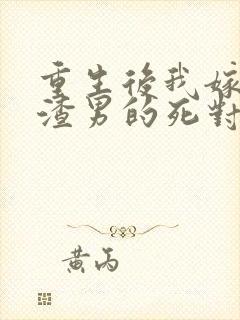 重生後我嫁
渣男的死對
黄丙